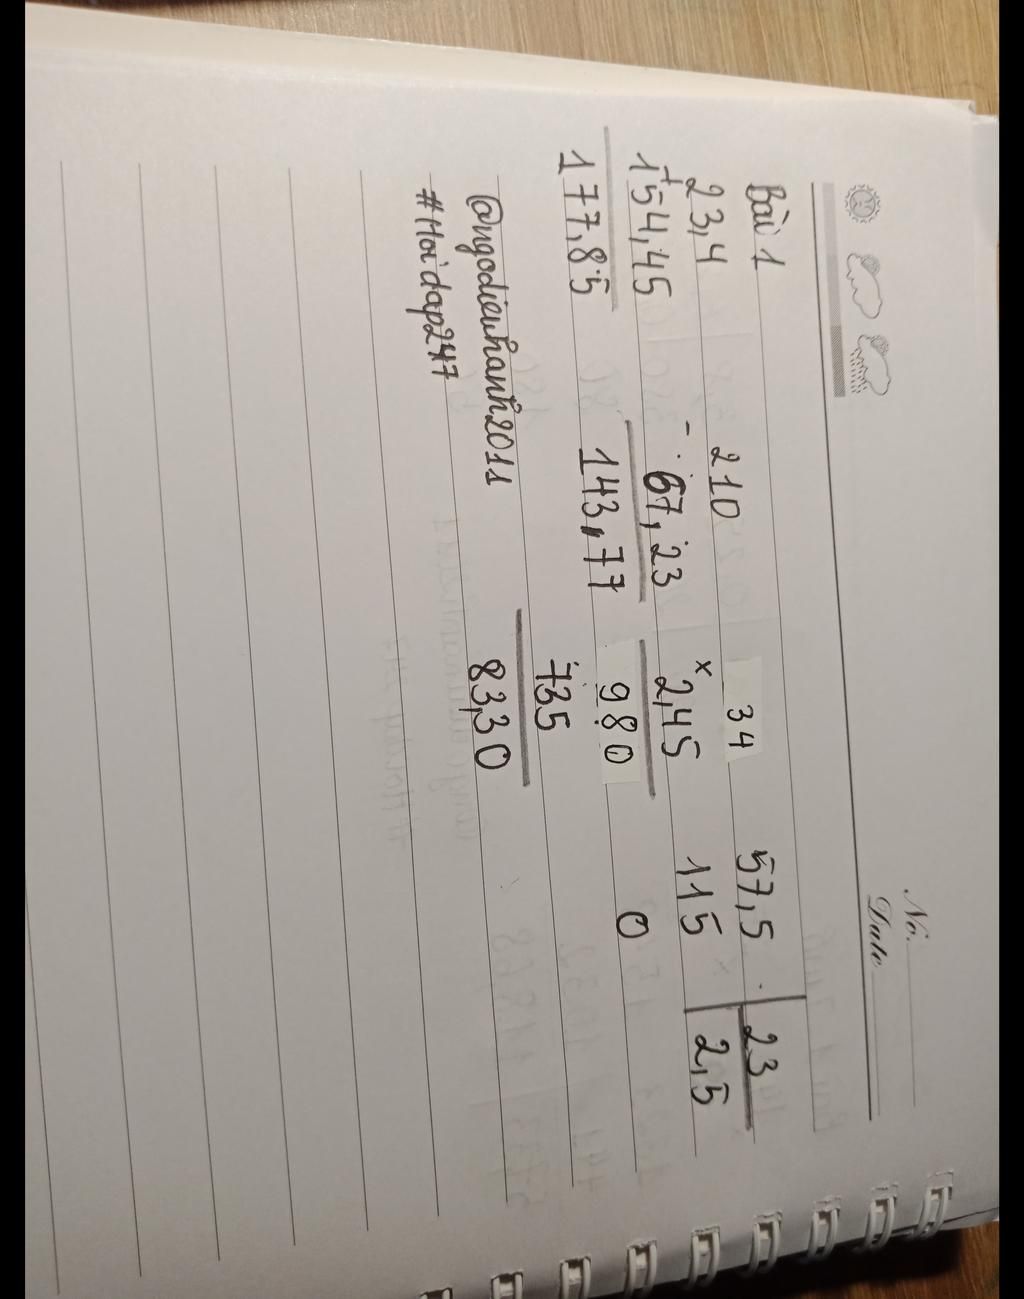 No.
Date
Bài 1
23,4 210 34 57,5 23
+ - x
154,45 67,23 2,45 115 2,5
177,85 143,77 980 0
735
83,30
@ngodieuhanh2011
#Hoidap247